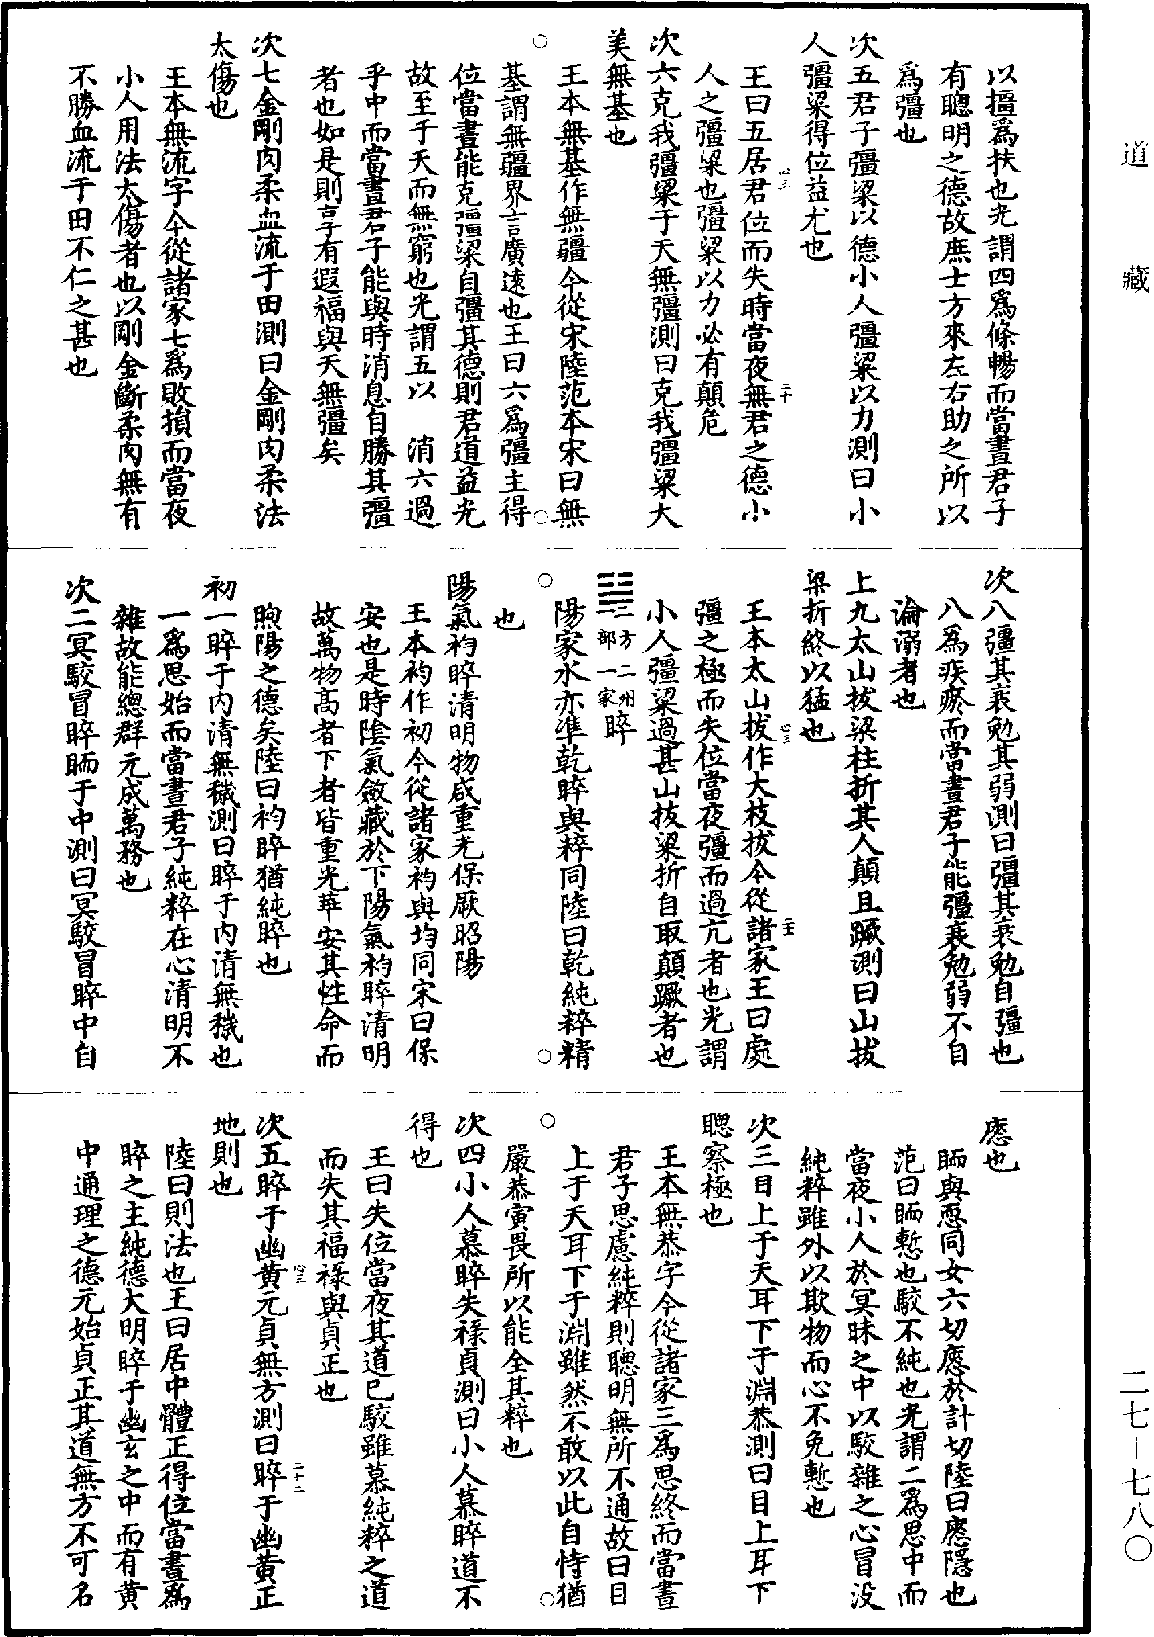 道藏
以彊爲扶也光謂四爲條暢而當晝君子
有聰明之德故庶士方來左右助之所以
爲彊也
次五君子彊梁以德小人彊梁以力測曰小
人彊梁得位益尤也
王曰五居君位而失時當夜無君之德小
人之彊梁也彊梁以力必有顛危
次六克我彊梁于天無彊測曰克我彊梁大
美無基也
王本無基作無疆今從宋陸范本宋曰無
基謂無疆界言廣遠也王曰六爲彊主得
位當晝能克彊梁自彊其德則君道益光
故至于天而無窮也光謂五以 消六過
乎中而當晝君子能與時消息自勝其彊
者也如是則享有遐福與天無彊矣
次七金剛肉柔血流于田測曰金剛肉柔法
太傷也
王本無流字今從諸家七爲敗損而當夜
小人用法太傷者也以剛金斷柔肉無有
不勝血流于田不仁之甚也
次八彊其衰勉其弱測曰彊其衰勉自彊也
八爲疾瘀而當晝君子能彊衰勉弱不自
淪溺者也
上九太山拔梁柱折其人顛且蹶測曰山拔
梁折終以猛也
王本太山拔作大枝拔今從諸家王曰處
彊之極而失位當夜彊而過亢者也光謂
小人彊梁過甚山拔梁折自取顛蹶者也
䷀一方二州一部一家睟
陽家水亦準乾睟與粹同陸曰乾純粹精
也
陽氣袀睟清明物咸重光保厥昭陽
王本袀作初今從諸家袀與均同宋曰保
安也是時陰氣斂藏於下陽氣袀睟清明
故萬物高者下者皆重光華安其性命而
煦陽之德矣陸曰袀睟猶純睟也
初一睟于内清無穢測曰睟于内清無穢也
一爲思始而當晝君子純粹在心清明不
雜故能總群元成萬務也
次二冥駮冒睟䀣于中測曰冥駮冒睟中自
應也
䀣與恧同女六切應於計切陸曰應隱也
范曰䀣慙也駮不純也光謂二爲思中而
當夜小人於冥昧之中以駮雜之心冒没
純粹雖外以欺物而心不免慙也
次三目上于天耳下于淵恭測曰目上耳下
聰察極也
王本無恭字今從諸家三爲思終而當晝
君子思慮純粹則聰明無所不通故曰目
上于天耳下于淵雖然不敢以此自恃猶
嚴恭寅畏所以能全其粹也
次四小人慕睟失禄貞測曰小人慕睟道不
得也
王曰失位當夜其道已駮雖慕純粹之道
而失其福禄與貞正也
次五睟于幽黄元貞無方測曰睟于幽黄正
地則也
陸曰則法也王曰居中體正得位當晝爲
睟之主純德大明睟于幽玄之中而有黄
中通理之德元始貞正其道無方不可名
二七—七八〇